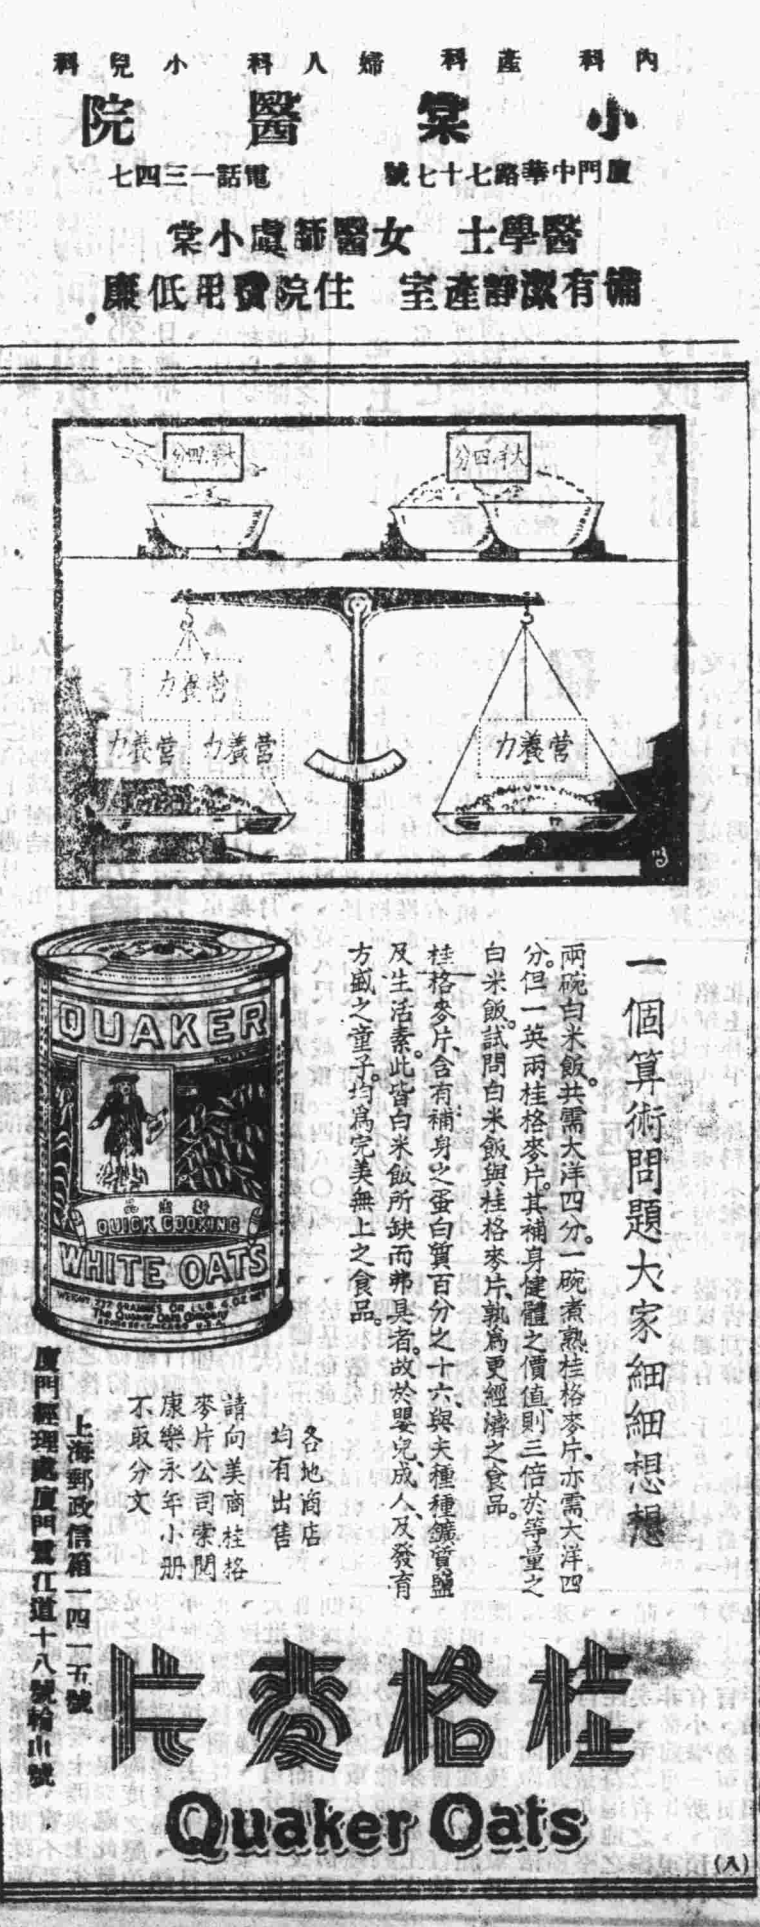 內科 產科 婦人科 小兒科
小棠醫院
廈門中華路七十七號 電話一三四七
醫學士 女醫師盧小棠
備有潔靜產室 住院費用低廉
大洋四分
大洋四分
營養力
營養力
營養力
營養力
一個算術問題大家細細想想
兩碗白米飯。共需大洋四分。一碗煮熟桂格麥片、亦需大洋四
分。但一英兩桂格麥片。其補身健體之價值、則三倍於等量之
白米飯。試問白米飯與桂格麥片、孰爲更經濟之食品。
桂格麥片、含有補身之蛋白質百分之十六、與夫種種鑛質鹽
及生活素。此皆白米飯所缺而弗具者。故於嬰兒、成人、及發育
方盛之童子。均爲完美無上之食品。
QUAKER
QUICK COOKING
WHITE OATS
The Quaker Oats Company
各地商店
均有出售
請向美商桂格
麥片公司索閱
康樂永年小册
不取分文
上海郵政信箱一四一五號
廈門經理處廈門鷺江道十八號輪山號
桂格麥片
Quaker Oats
(入)